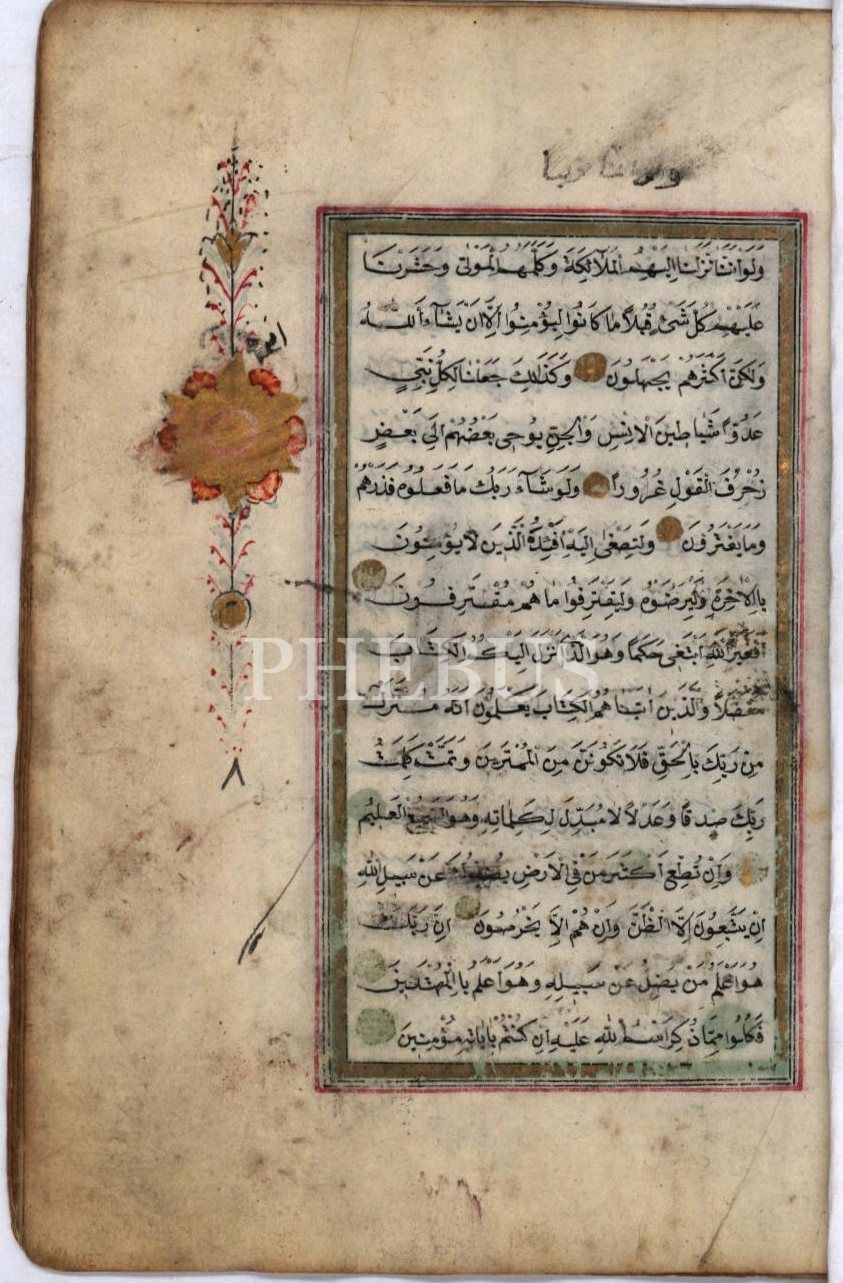 وَلَوْ اَنَّنَا نَزَّلْنَا اِلَيْهِمُ الْمَلٰٓئِكَةَ وَكَلَّمَهُمُ الْمَوْتٰى وَحَشَرْنَا
عَلَيْهِمْ كُلَّ شَىْءٍ قُبُلًا مَا كَانُوا لِيُؤْمِنُوا اِلَّا اَنْ يَشَآءَ اللّٰهُ
وَلٰكِنَّ اَكْثَرَهُمْ يَجْهَلُونَ وَكَذٰلِكَ جَعَلْنَا لِكُلِّ نَبِيٍّ
عَدُوًّا شَيَاطِينَ الْاِنْسِ وَالْجِنِّ يُوحِى بَعْضُهُمْ اِلٰى بَعْضٍ
زُخْرُفَ الْقَوْلِ غُرُورًا وَلَوْ شَآءَ رَبُّكَ مَا فَعَلُوهُ فَذَرْهُمْ
وَمَا يَفْتَرُونَ وَلِتَصْغٰى اِلَيْهِ اَفْئِدَةُ الَّذِينَ لَا يُؤْمِنُونَ
بِالْاٰخِرَةِ وَلِيَرْضَوْهُ وَلِيَقْتَرِفُوا مَا هُمْ مُقْتَرِفُونَ
اَفَغَيْرَ اللّٰهِ اَبْتَغِى حَكَمًا وَهُوَ الَّذِى اَنْزَلَ اِلَيْكُمُ الْكِتَابَ
مُفَصَّلًا وَالَّذِينَ اٰتَيْنَاهُمُ الْكِتَابَ يَعْلَمُونَ اَنَّهُ مُنَزَّلٌ
مِنْ رَبِّكَ بِالْحَقِّ فَلَا تَكُونَنَّ مِنَ الْمُمْتَرِينَ وَتَمَّتْ كَلِمَتُ
رَبِّكَ صِدْقًا وَعَدْلًا لَا مُبَدِّلَ لِكَلِمَاتِهِ وَهُوَ السَّمِيعُ الْعَلِيمُ
وَاِنْ تُطِعْ اَكْثَرَ مَنْ فِى الْاَرْضِ يُضِلُّوكَ عَنْ سَبِيلِ اللّٰهِ
اِنْ يَتَّبِعُونَ اِلَّا الظَّنَّ وَاِنْ هُمْ اِلَّا يَخْرُصُونَ اِنَّ رَبَّكَ
هُوَ اَعْلَمُ مَنْ يَضِلُّ عَنْ سَبِيلِهِ وَهُوَ اَعْلَمُ بِالْمُهْتَدِينَ
فَكُلُوا مِمَّا ذُكِرَ اسْمُ اللّٰهِ عَلَيْهِ اِنْ كُنْتُمْ بِاٰيَاتِهِ مُؤْمِنِينَ
٨
PHEBUS